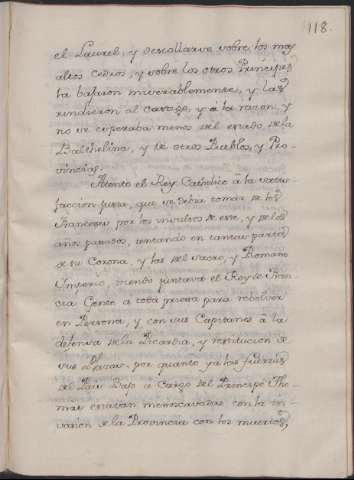 118.
el Laurel, y descollarse sobre los mas
altos cedros, y sobre los otros Principes
ta bajaron miserablemente, y las
rindieron al castigo, y à la razon, y
no se esperaba menos del estado de la
y de otros Pueblos, y Pro-
vincias.
Atento el Rey Catholico â la satis-
faccion justa, que se debia tomar de los
Franceses por los insultos de este, y de los
años pasados, tentando en tantas partes
de su Corona, y las del Sacro, y Romano
Imperio, viendo juntava el Rey de Fran-
cia Gente a toda priesa para rebolver
en Persona, y con sus Capitanes â la
defensa de la Picardia, y restitucion de
sus Plazas, por quanto ya las fuerzas
del Pais Bajo a Cargo del Principe Tho-
mas estavan menoscavadas con la in-
vasion de la Provincia con los muertos,